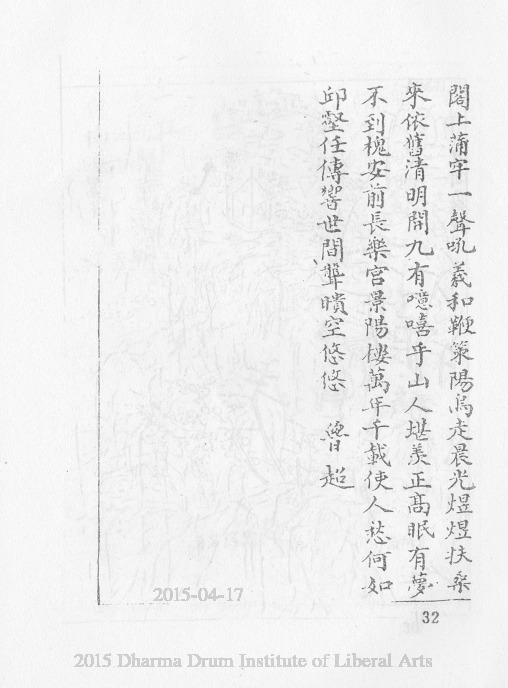 閣上蒲牢一聲吼羲和鞭策陽烏走晨光煜煜扶桑
來依舊清明開九有噫嘻乎山人堪羨正高眠有夢
不到槐安前長樂宮景陽樓萬年千載使人愁何如
邱壑任傳響世間聾聵空悠悠　魯超
32
2015-04-17
2015 Dharma Drum Institute of Liberal Arts